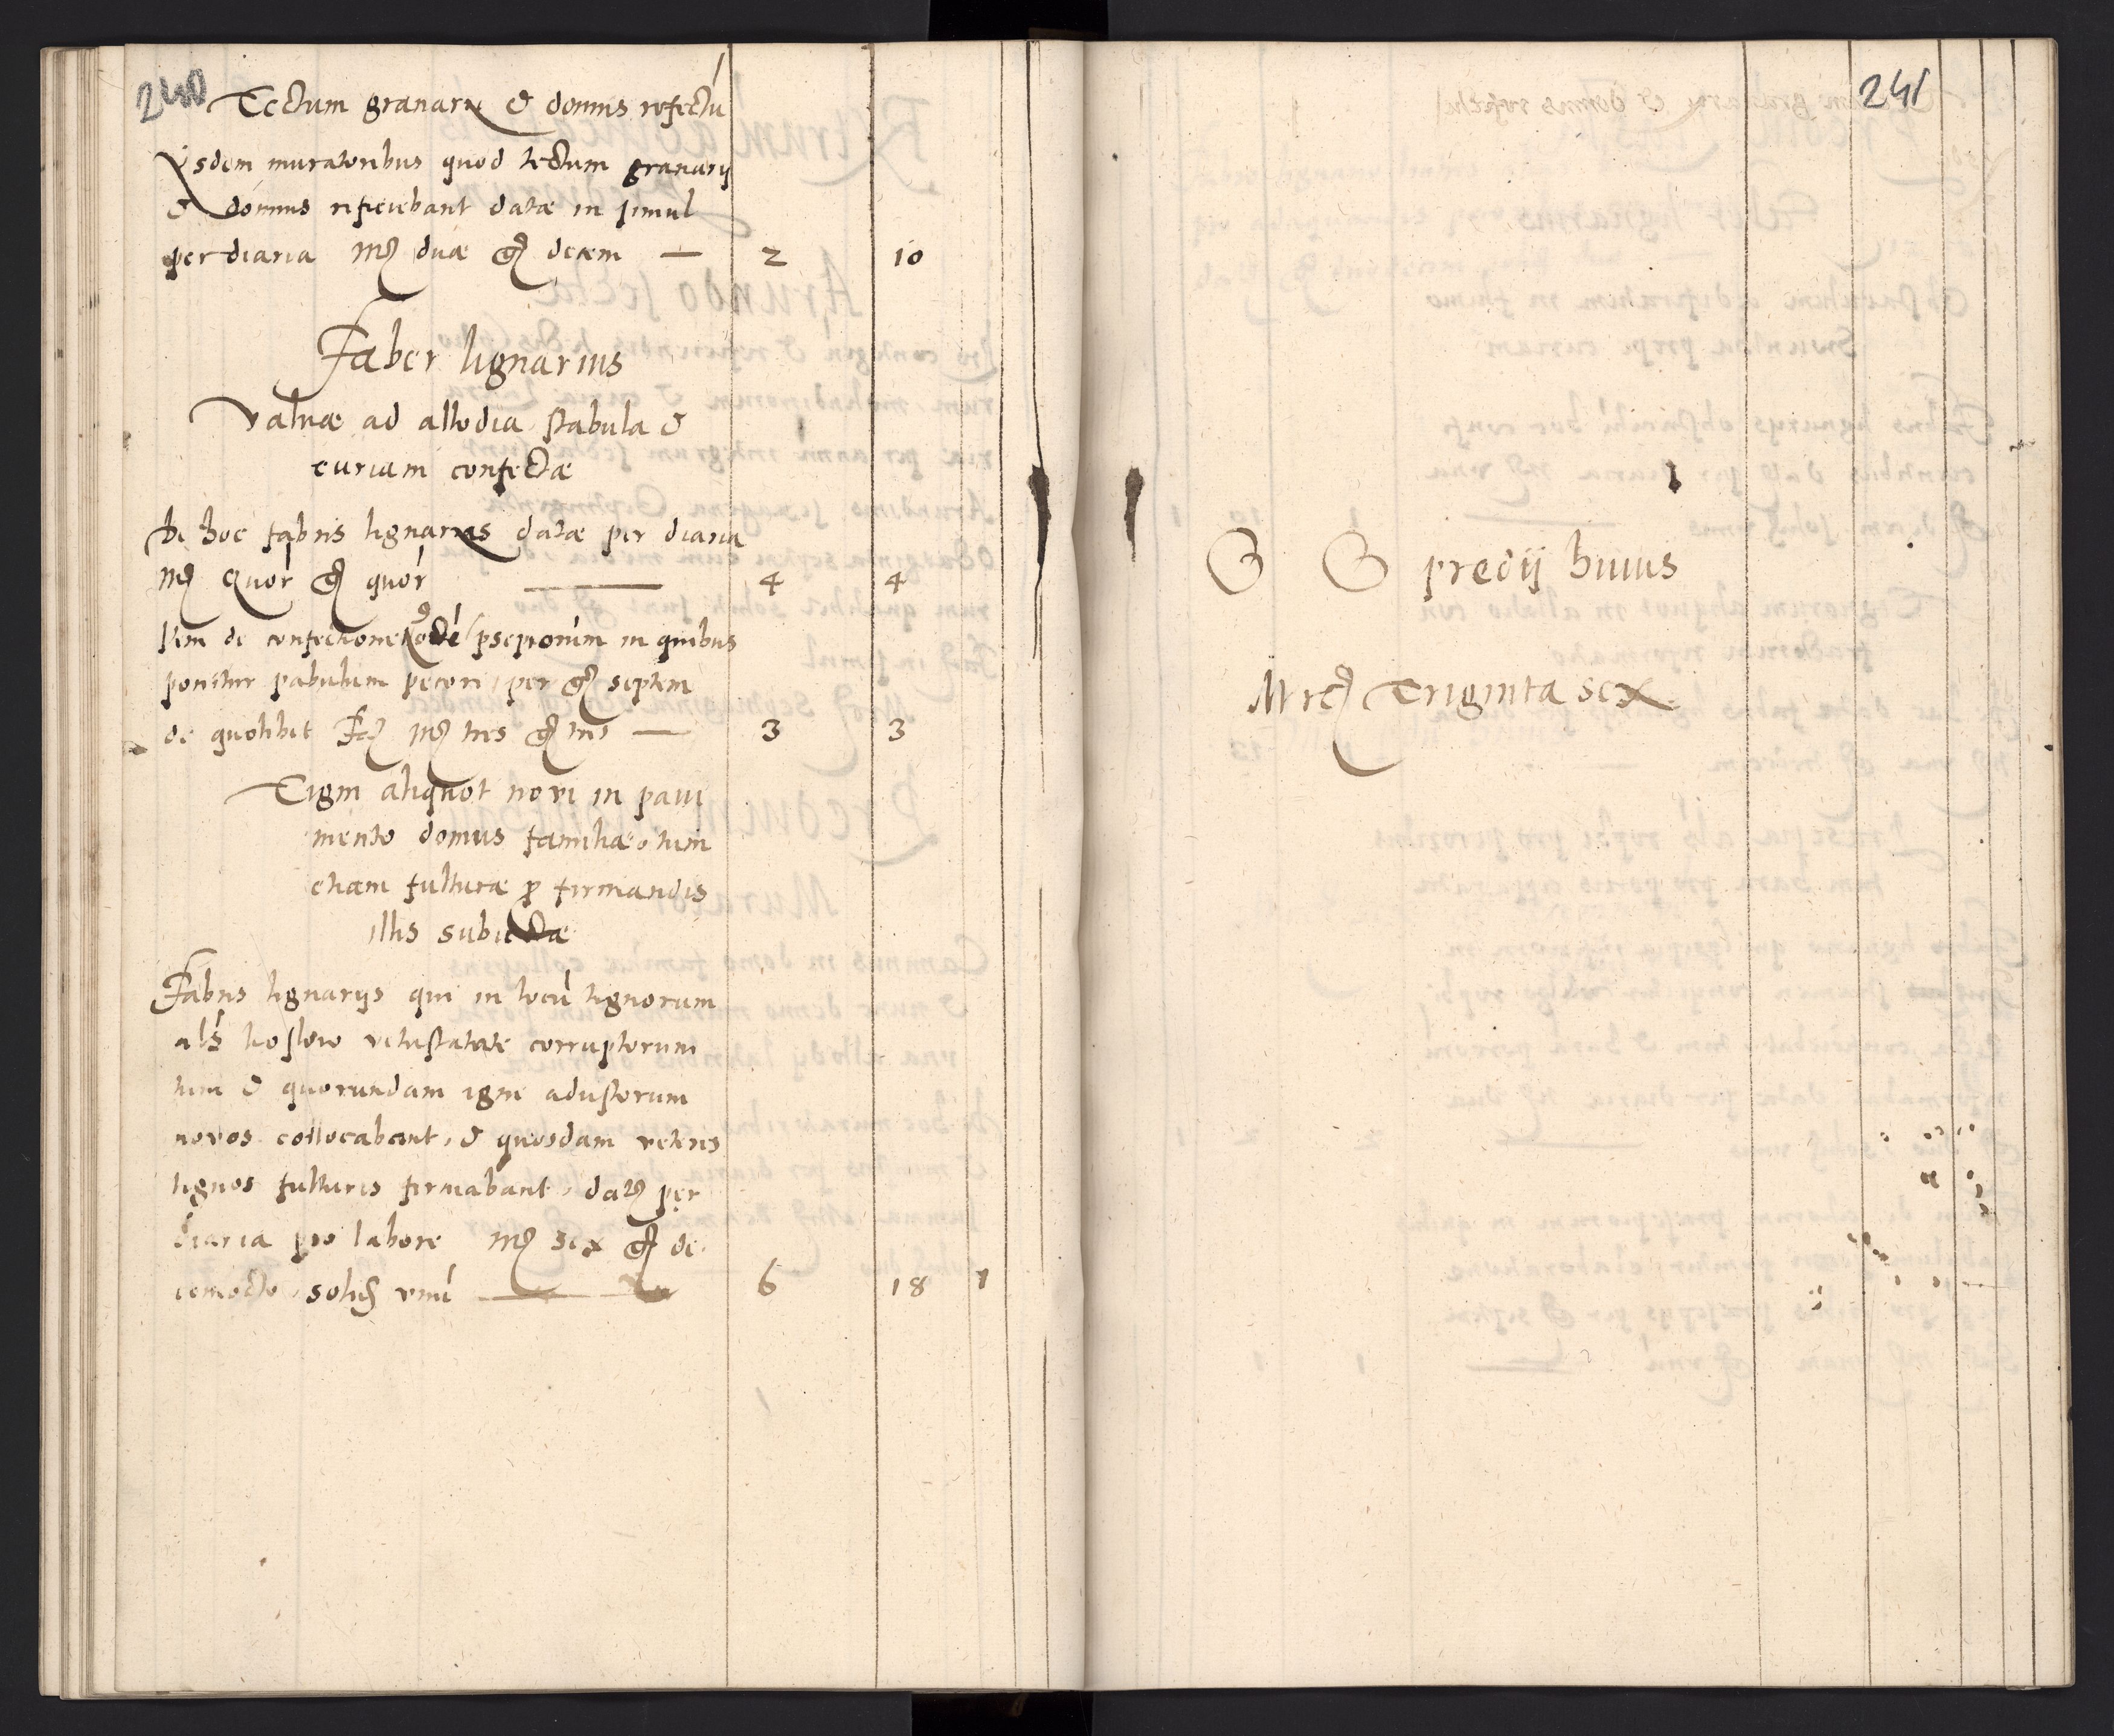 240
Tectum granarij & domus refectú
Ijsdem muratoribus quod tectum granarij
& domus reficiebant datæ in simul
per diaria Mꝭ duæ gꝭ decem — 2 10
Faber lignarius
Valuæ ad allodia stabula &
curiam confectæ
De hoc fabris lignarijs datæ per diaria
Mꝭ quór gꝭ quór — 4 4
Item de confectione psepiorum in quibus
ponitur pabulum pecori, per gꝭ septem
de quolibet Mꝭ tres gꝭ tres — 3 3
Tigni aliquot novi in pavi
mento domus familiæ, tum
etiam fulturæ p firmandis
illis subiectæ
Fabris lignarijs qui in locú tignorum
vetustatate corruptorum
tum & quorundam igne adustorum
novos collocabant, & quosdam veteres
tignos fulturis firmabant, datꝭ per
diaria pro labore Mꝭ sex gꝭ de
cemocto, solidꝭ vnú — 6 18 1
241
predij huius
Mrcꝭ Triginta sex